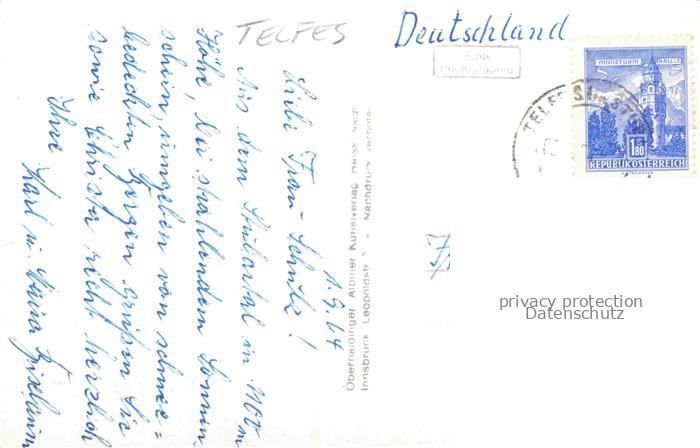 TELFES
Deutschland
Echte
Photographie
MÜNZTURM HALL i. T.
1.80
REPUBLIK ÖSTERREICH
TELFES IM STUBAI
1.9.64
Liebe Frau Schütz!
Aus dem Stubaital in 1100 m
Höhe, bei strahlendem Sonnen
schein, umgeben von schnee=
bedeckten Bergen grüßen Sie
sowie Christa recht herzlich
Ihre
Karl u. Maria
Oberhaidinger Alpiner Kunstverlag Heiss Nachf.
Innsbruck Leopoldstr. 2 - Nachdruck verboten
privacy protection
Datenschutz